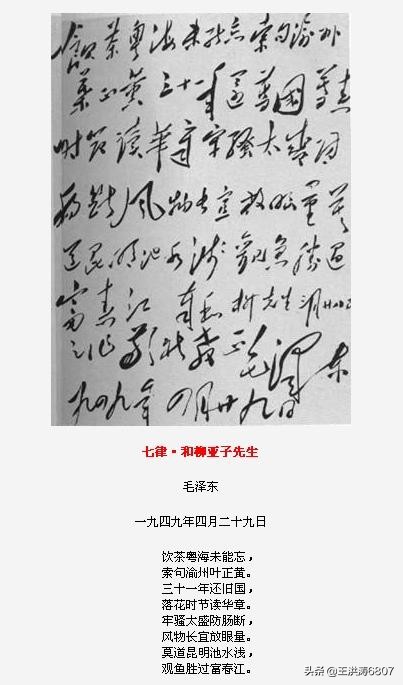 飲茶粤海未能忘索句渝州
葉正黄三十一年還舊國落花
时節读華章牢騷太盛防
腸斷风物长宜放眼量莫
道昆明池水浅觀魚勝过
富春江 奉和柳先生三月廿八日
之作敬祈教正 毛泽东
一九四九年四月廿九日
七律·和柳亚子先生
毛泽东
一九四九年四月二十九日
饮茶粤海未能忘，
索句渝州叶正黄。
三十一年还旧国，
落花时节读华章。
牢骚太盛防肠断，
风物长宜放眼量。
莫道昆明池水浅，
观鱼胜过富春江。
头条 @王洪涛6807